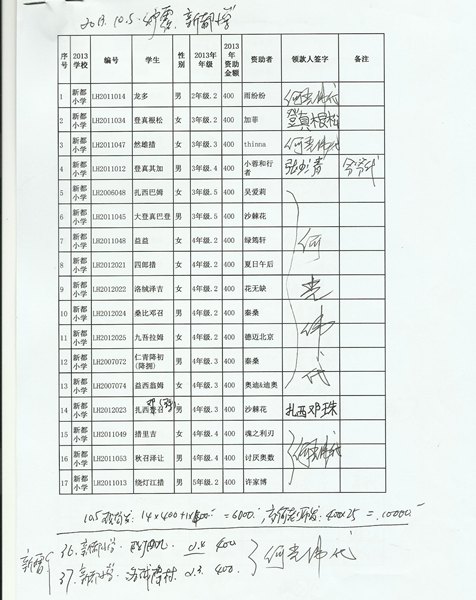 2013.10.5. 炉霍. 新都小学
序号 2013学校 编号 学生 性别 2013年年级 2013年资助金额 资助者 领款人签字 备注
1 新都小学 LH2011014 龙多 男 2年级.2 400 雨纷纷 何光伟代
2 新都小学 LH2011034 登真根松 女 2年级.2 400 加菲 登真根松
3 新都小学 LH2011047 然雄措 女 2年级.3 400 thinna 何光伟代
4 新都小学 LH2011012 登真其加 男 3年级.4 400 小善和行者
5 新都小学 LH2006048 扎西巴姆 女 3年级.5 400 吴爱莉
6 新都小学 LH2011045 大登真巴登 男 3年级.5 400 沙棘花
7 新都小学 LH2011048 益益 女 4年级.2 400 绿筠轩 何
8 新都小学 LH2012021 四郎措 女 4年级.3 400 夏日午后
9 新都小学 LH2012022 洛绒泽吉 女 4年级.2 400 花无缺 光
10 新都小学 LH2012024 桑比邓召 男 4年级.2 400 秦桑
11 新都小学 LH2012025 九吾拉姆 女 4年级.2 400 德迈北京 伟
12 新都小学 LH2007072 仁青降初(降拥) 男 4年级.3 400 秦桑
13 新都小学 LH2007074 益西翁姆 女 4年级.3 400 奥迪&迪奥 代
14 新都小学 LH2012023 扎西 召 男 4年级.3 400 沙棘花 扎西邓珠
15 新都小学 LH2011049 措里吉 女 4年级.4 400 魂之利刃
16 新都小学 LH2011053 秋召泽让 男 4年级.4 400 讨厌奥数 何光伟代
17 新都小学 LH2011013 绕灯江措 男 5年级.2 400 许家博
10.5 14×400+1× =6000 400×25 =10000
36. 新都小学 2.4 400
37. 新都小学 2.3. 400. 何光伟代